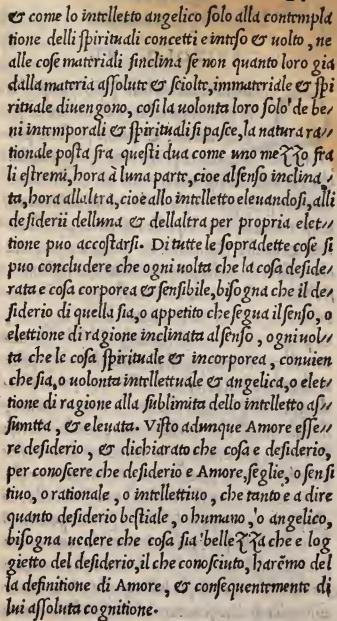 & come lo intelletto angelico solo alla contempla
tione delli spirituali concetti e inteso & uolto, ne
alle cose materiali sinclina se non quanto loro gia
dalla materia assolute & sciolte, immateriale & spi
rituale diuengono, cosi la uolonta loro solo de be⸗
ni intemporali & spirituali si pasce, la natura ra⸗
tionale posta fra questi dua come uno mezzo fra
li estremi, hora à luna parte, cioe al senso inclina⸗
ta, hora allaltra, cioè allo intelletto eleuandosi, alli
desiderii delluna & dellaltra per propria elet⸗
tione puo accostarsi. Di tutte le sopradette cose si
puo concludere che ogni uolta che la cosa deside⸗
rata e cosa corporea & sensibile, bisogna che il de⸗
siderio di quella sia, o appetito che segua il senso, o
elettione di ragione inclinata al senso, ogni uol⸗
ta che le cosa spirituale & incorporea, conuien
che sia, o uolonta intellettuale & angelica, o elet⸗
tione di ragione alla sublimita dello intelletto as⸗
sumtta, & eleuata. Visto adunque Amore esse⸗
re desiderio, & dichiarato che cosa e desiderio,
per conoscere che desiderio e Amore, seglie, o sensi
tiuo, o rationale, o intellettiuo, che tanto e a dire
quanto desiderio bestiale, o humano, o angelico,
bisogna uedere che cosa sia bellezza che e log
gietto del desiderio, il che conosciuto, harẽmo del
la definitione di Amore, & consequentemente di
lui assoluta cognitione.